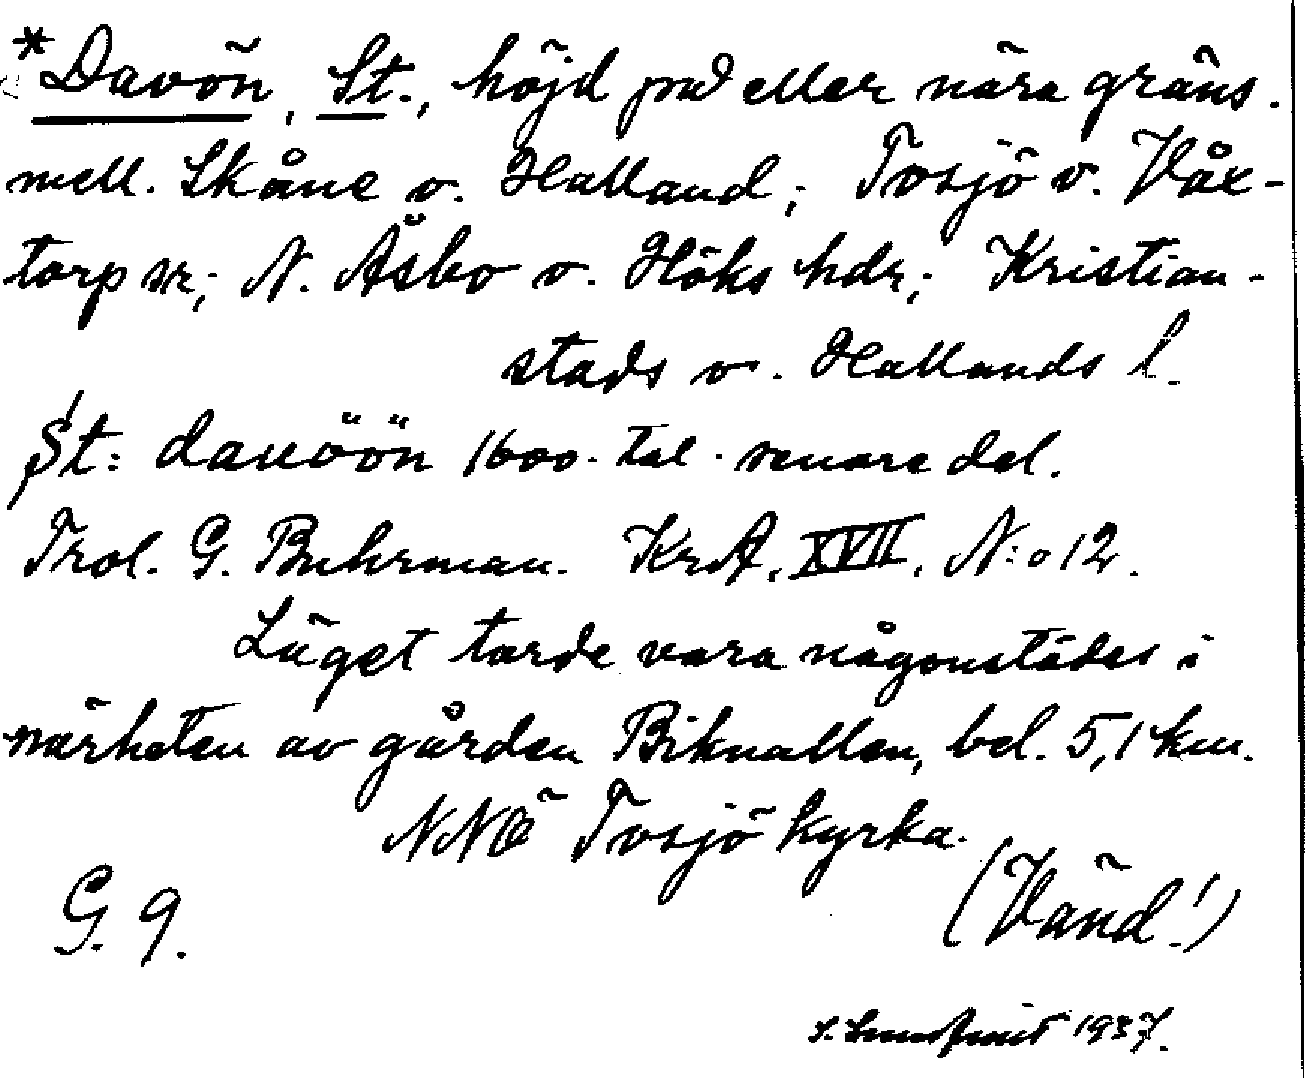 *Davön, St., höjd på eller nära gräns.
mell. Skåne o. Halland; Tosjö o. Våx-
torp sn; N. Åsbo o. Höks hdr; Kristian-
stads o. Hallands l.
St: dauöön 1600-tal. senare del.
Trol. G. Buhrman. KrA, XVII, N:o 12.
Läget torde vara någonstädes i
närheten av gården Biknallen, bel. 5,1 km.
NNÖ Tosjö kyrka.
(Vänd!)
G. 9.
1937.